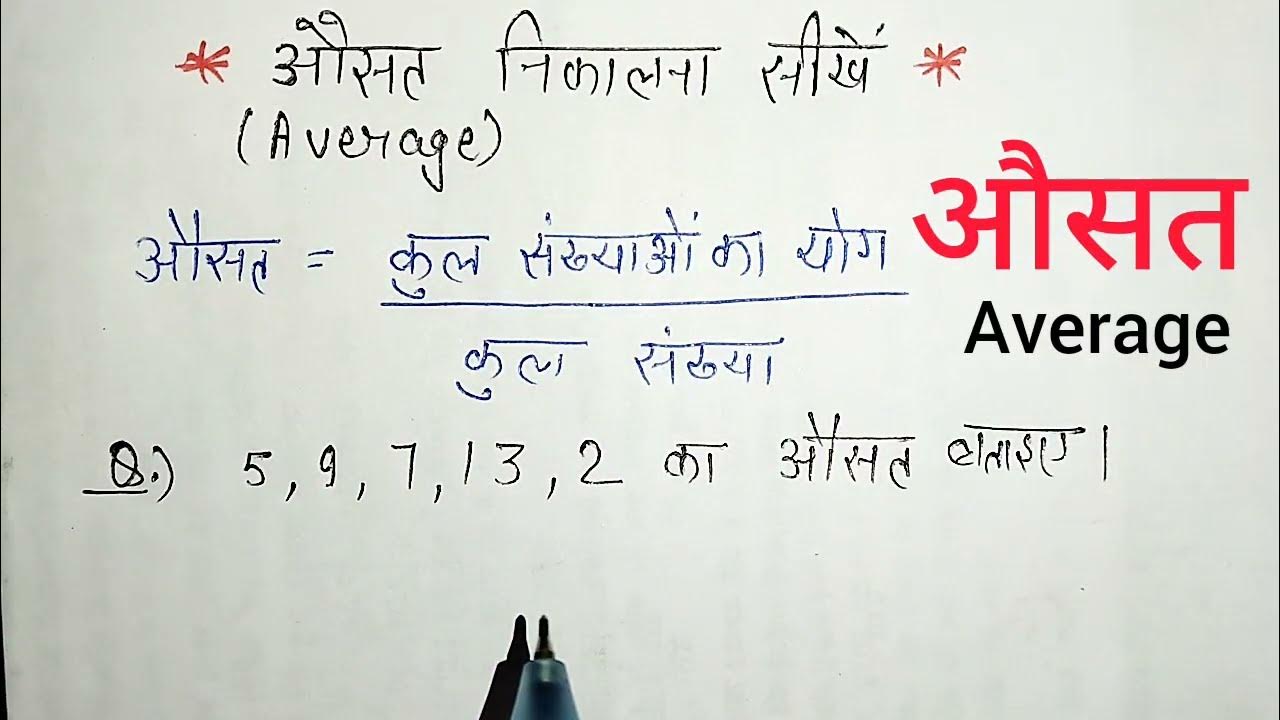 * औसत निकालना सीखें *
(Average)
औसत = कुल संख्याओं का योग
कुल संख्या
औसत
Average
Q.) 5, 9, 7, 13, 2 का औसत बताइए।